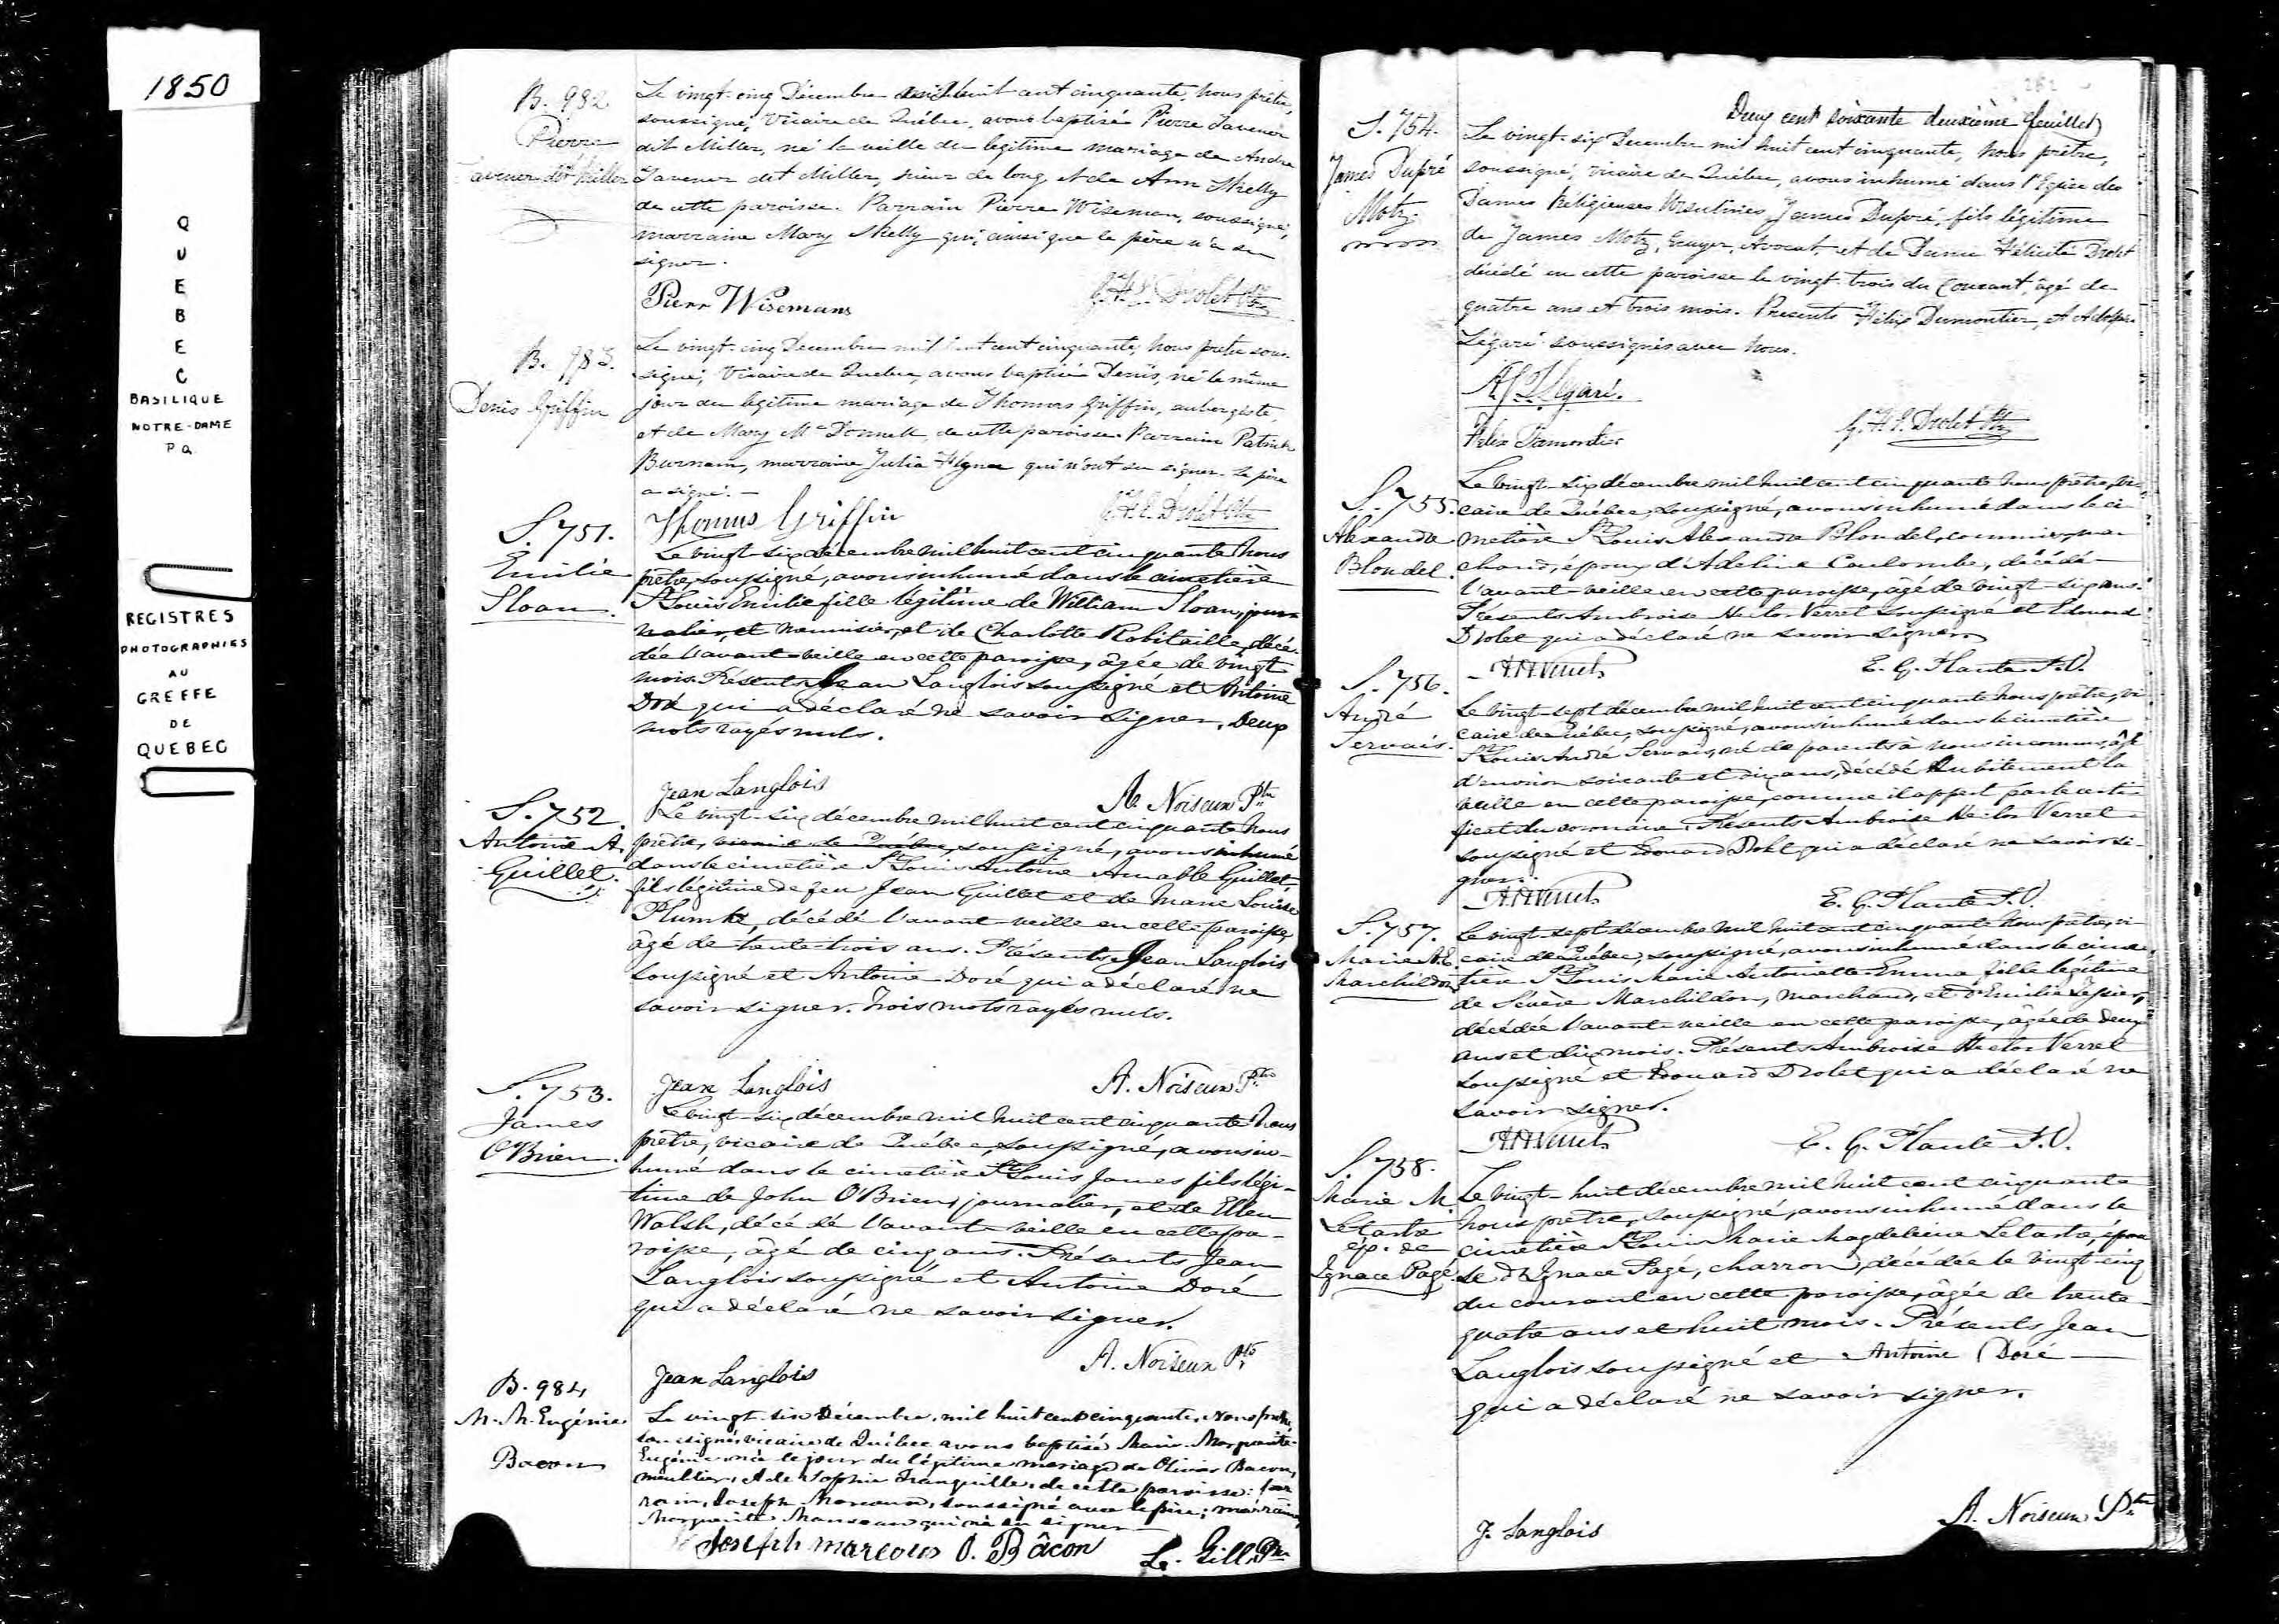 1850
QUEBEC
BASILIQUE
NOTRE-DAME
P.Q.
REGISTRES
PHOTOGRAPHIES
AU
GREFFE
DE
QUEBEC
B. 982
Pierre
Tavener dit Miller
Le vingt-cinq Décembre mil huit cent cinquante, Nous prêtre,
soussigné, Vicaire de Québec, avons baptisé Pierre Tavener
dit Miller, né la veille du légitime mariage de Andre
Tavener dit Miller, scieur de long, et de Ann Skelly
de cette paroisse. Parrain Pierre Wiseman, soussigné,
marraine Mary Skelly qui, ainsi que le père n'a su
signer.
Pierr Wisemans
P. H. Drolet Ptre
B. 983.
Denis Griffin
Le vingt-cinq Decembre mil huit cent cinquante, Nous prêtre sous-
signé, Vicaire de Quebec, avons baptisé Denis, né le même
jour du légitime mariage de Thomas Griffin, aubergiste
et de Mary McDonnell, de cette paroisse. Parrain Patrick
Burnam, marraine Julia qui n'ont su signer. Le père
a signé. —
Thomas Griffin
Drolet Ptre
S. 751.
Emilie
Sloan.
Le vingt-six décembre mil huit cent cinquante Nous
prêtre, soussigné, avons inhumé dans le cimetière
St Louis Emilie fille légitime de William Sloan, jour-
nalier, et menuisier, et de Charlotte Robitaille, décé-
dée l'avant-veille en cette paroisse, âgée de vingt
mois. Présents Jean Langlois soussigné et Antoine
Doré qui a déclaré ne savoir signer. Deux
mots rayés nuls.
Jean Langlois
A. Noiseux Ptre
S. 752.
Antoine A.
Guillet.
Le vingt-six décembre mil huit cent cinquante Nous
prêtre, vicaire de Québec, soussigné, avons inhumé
dans le cimetière St Louis Antoine Amable Guillet,
fils légitime de feu Jean Guillet et de Marie Louise
décédé l'avant-veille en cette paroisse,
âgé de trente-trois ans. Présents Jean Langlois
soussigné et Antoine Doré qui a déclaré ne
savoir signer. Trois mots rayés nuls.
Jean Langlois
A. Noiseux Ptre
S. 753.
James
O'Brien.
Le vingt-six décembre mil huit cent cinquante Nous
prêtre, vicaire de Québec, soussigné, avons in-
humé dans le cimetière St Louis James fils légi-
time de John O'Brien, journalier, et de Ellen
Walsh, décédé l'avant-veille en cette pa-
roisse, âgé de cinq ans. Présents Jean
Langlois soussigné et Antoine Doré
qui a déclaré ne savoir signer.
Jean Langlois
A. Noiseux Ptre
B. 984
M. M. Eugénie
Bacon
Le vingt-six Décembre, mil huit cent cinquante, Nous prêtre,
soussigné, vicaire de Québec avons baptisé Marie-Marguerite-
Eugénie née le jour du légitime mariage de Olivier Bacon,
meublier, et de Sophie Tranquille, de cette paroisse: par-
rain, Joseph Marcoux, soussigné avec le père; marraine,
Marguerite qui n'a su signer
Joseph marcoux O. Bâcon
L. Gill Ptre
262
Deux cent soixante deuxième feuillet
S. 754.
James Dupré
Motz.
Le vingt-six Decembre mil huit cent cinquante, Nous prêtre,
soussigné, vicaire de Québec, avons inhumé dans l'Eglise des
Dames Réligieuses Ursulines James Dupré, fils légitime
de James Motz, Ecuyer, Avocat, et de Dame Félicité Drolet
décédé en cette paroisse le vingt-trois du Courant, âgé de
quatre ans et trois mois. Presents Félix Dumontier, et Adolphe
Légaré soussignés avec Nous.
Légaré.
Felix Dumontier
P. H. Drolet Ptre
S. 755.
Alexandre
Blondel.
Le vingt-six décembre mil huit cent cinquante Nous prêtre, vi-
caire de Québec, soussigné, avons inhumé dans le ci-
metière St Louis Alexandre Blondel, commis-mar-
chand, époux d'Adeline Coulombe, décédé
l'avant-veille en cette paroisse, âgé de vingt-six ans.
Présents Ambroise Hector Verret soussigné et Edouard
Drolet qui a déclaré ne savoir signer.
E. G. Plante P.V.
S. 756.
André
Servais.
Le vingt-sept décembre mil huit cent cinquante Nous prêtre, vi-
caire de Québec, soussigné, avons inhumé dans le cimetière
St Louis André Servais, né de parents à nous inconnus, âgé
d'environ soixante et dix ans, décédé subitement la
veille en cette paroisse, comme il appert par le certi-
ficat du coronaire. Présents Ambroise Hector Verret
soussigné et Edouard Drolet qui a déclaré ne savoir si-
gner.
E. G. Plante P.V.
S. 757.
Marie A. E.
Marchildon
Le vingt-sept décembre mil huit cent cinquante Nous prêtre, vi-
caire de Québec, soussigné, avons inhumé dans le cime-
tière St Louis Marie Antoinette Emma fille légitime
de Sévère Marchildon, marchand, et d'Emilie
décédée l'avant-veille en cette paroisse, âgée de deux
ans et dix mois. Présents Ambroise Hector Verret
soussigné et Edouard Drolet qui a déclaré ne
savoir signer.
E. G. Plante P.V.
S. 758.
Marie M.
Letarte
ép. de
Ignace Pagé
Le vingt-huit décembre mil huit cent cinquante
Nous prêtre, soussigné, avons inhumé dans le
cimetière St Louis Marie Magdeleine Letarte, épou-
se d'Ignace Pagé, charron, décédée le vingt-cinq
du courant en cette paroisse, âgée de trente-
quatre ans et huit mois. Présents Jean
Langlois soussigné et Antoine Doré
qui a déclaré ne savoir signer.
J. Langlois
A. Noiseux Ptre